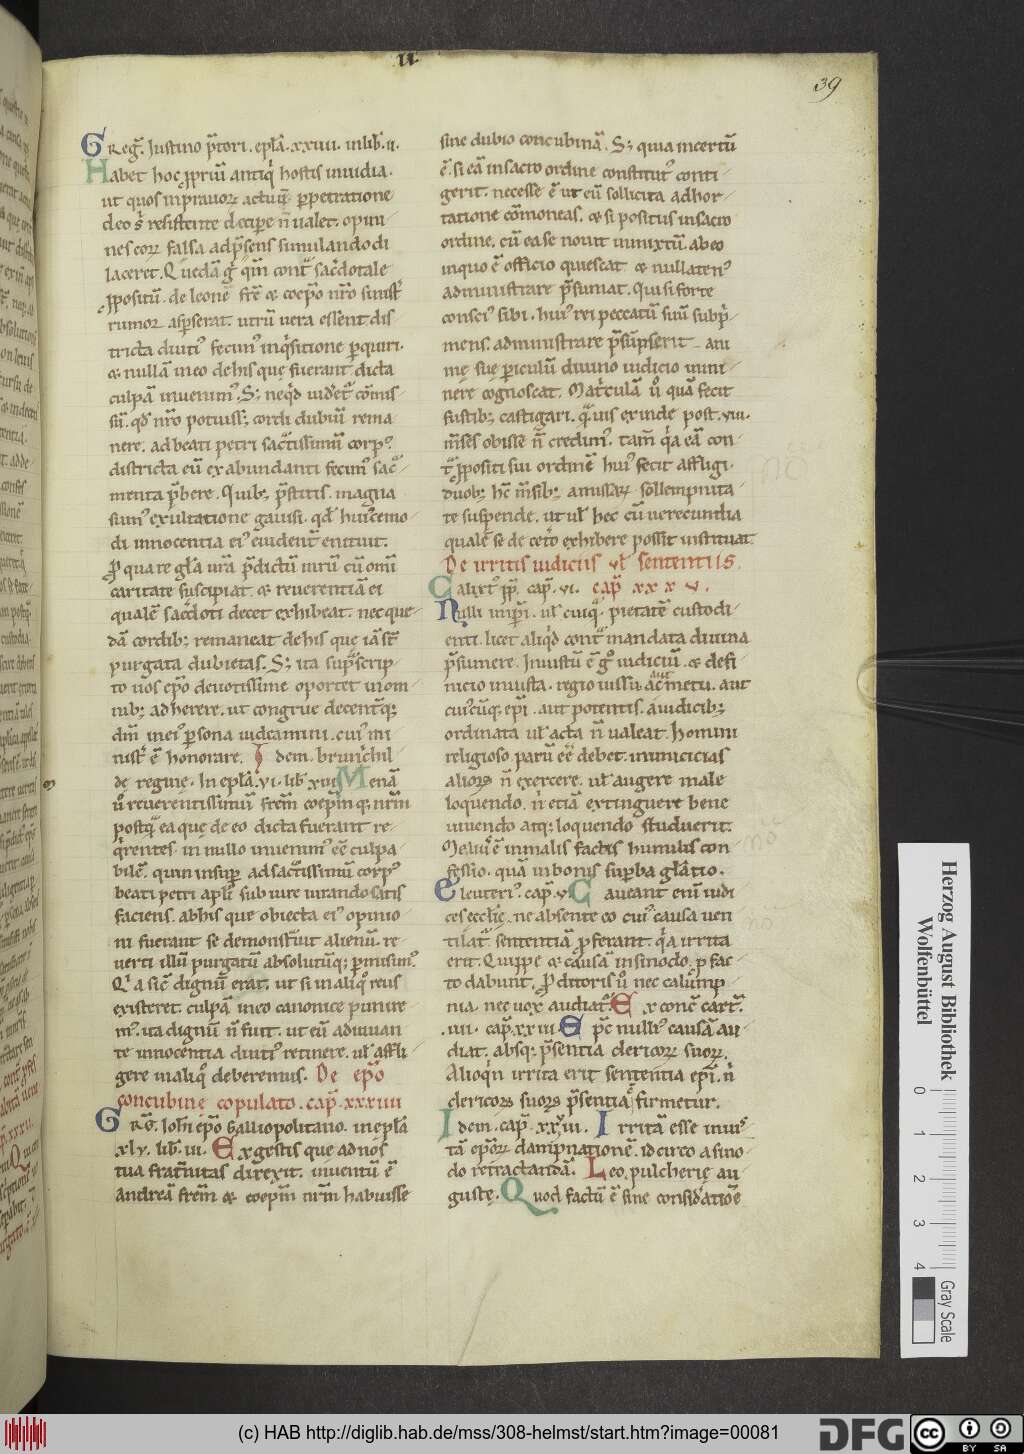 u
39
Greg̃. Iustino p̃tori. epl̃a .xxiiii. inlib̃. ii.
Habet hoc ꝓpriũ antiq̃ hostis inuidia.
ut quos inprauorꝝ actuũ ꝑpetratione
deo s̃ resistente decipe ñ ualet. opini
nes eorꝝ falsa adp̃sens simulando di
laceret. Quedã g̃ qm̃ cont̃ sac̃dotale
ꝓpositũ. de leone fr̃e & coep̃o nr̃o sinist̃
rumor aspserat. utrũ uera essent dis
tricta diuti᾽ fecim᾽ inq̃sitione ꝑquiri.
& nullã ineo dehis quę fuerant dicta
culpã inuenim᾽. S; neq̃d uideret᾽ cõmis
sũ. qd̃ nr̃o potuiss; cordi dubiũ rema
nere. adbeati petri sac̃tissimũ corp᾽
districta eũ exabundanti fecim᾽ sac̃
menta p̃bere. Quib; p̃stitis. magna
sum᾽ exultatione gauisi. qd̃ hui᾽cemo
di innocentia ei᾽ euident̃ enituit.
ꝓ qua re gl̃a ur̃a p̃dictũ uirũ cũ om̃i
caritate suscipiat. & reuerentiã ei
qualẽ sac̃doti decet exhibeat. nec que
dã cordib; remaneat dehis quę iã st̃
purgata dubietas. S; ita sup̃scrip
to uos ep̃o deuotissime oportet inom
nib; adherere. ut congrue decentq;
dm̃ inei᾽ persona iudicamini. cui᾽ mi
nist̃ ẽ honorare. Idem. brunichil
de reginę. In epl̃a .vi. lib̃. xiii. Menã
u᾽ reuerentissimũ frem̃ coepm̃q; nr̃m
postq̃ ea quę de eo dicta fuerant re
q̃rentes. in nullo inuenim᾽ eẽ culpa
bilẽ. quin insup̃ ad sac̃tissimũ corp᾽
beati petri apl̃i sub iure iurando satis
faciens. abhis que obiecta ei᾽ opinio
ni fuerant se demonst̃uit alienũ. re
uerti illũ purgatũ absolutũq; ꝑmisim᾽.
Q̃a sic̃ dignũ erat. ut si inaliq᾽ reus
existeret. culpã ineo canonice punire
m᾽. ita dignũ ñ fuit. ut eũ adiuuan
te innocentia diuti᾽ retinere. ul̃ affli
gere inaliq᾽ deberemus. De ep̃o
concubine copulato. cap̃. xxxiiii
Greg̃. Ioh̃i ep̃o Galliopolitano. inepl̃a
xlv. lib̃. iii. Ex gestis que ad nos
tua frat̃nitas direxit. inuentũ ẽ
andreã frem̃ & coepm̃ nr̃m habuisse
sine dubio concubinã. S; quia incertũ
ẽ. si eã insacro ordine constitut᾽ conti
gerit. necesse ẽ ut eũ sollicita adhor
tatione cõmoneas. & si positus insacro
ordine. cũ ea se nouit immixtũ. ab eo
inquo ẽ officio quiescat & nullaten᾽
administrare p̃sumat. Qui si forte
consci᾽ sibi. hui᾽ rei peccatũ suũ subp̃
mens. administrare p̃sũpserit. ani
mę suę ꝑiculũ diuino iudicio inmi
nere cognoscat. Mat̃culã u᾽ quã fecit
fustib; castigari. q̃uis exinde post. viii.
m̃ses obisse ñ credim᾽. tam̃ q̃a eã con
t̃ ꝓpositi sui ordinẽ hui᾽ fecit affligi.
duob; hc̃ m̃sib; a missarꝝ sollempnita
te suspende. ut ul̃ hec cũ uerecundia
qualẽ se de cet̃o exhibere possit instituat.
De irritis iudiciis ul̃ sententiis.
Calixt᾽ pp̃. cap̃. vi. cap̃ xxxv.
Nulli imp̃i. ul̃ cuiq̃ pietatẽ custodi
enti. licet aliq̃d cont̃ mandata diuina
p̃sumere. Iniustũ ẽ g᾽ iudiciũ. & defi
nitio iniusta. regio iussu. aut metu. aut
cui᾽cũq; ep̃i. aut potentis. a iudicib;
ordinata ul̃ acta ñ ualeat. Homini
religioso parũ eẽ debet. inimicicias
aliorꝝ ñ exercere. ul̃ augere male
loquendo. ñ etiã extinguere bene
uiuendo atq; loquendo studuerit.
Meliꝰ ẽ inmalis factis humilis con
fessio. quã inbonis supba gl̃atio.
Eleuteri᾽. cap̃. v. Caueant enĩ iudi
ces eccl̃ię. ne absente eo cui᾽ causa uen
tilat᾽ sententiã ꝓferant. q̃a irrita
erit. Quippe & causã insinodo. ꝓ fac
to dabunt. Proditoris u᾽ nec calũmp
nia. nec uox audiat᾽. Ex conc̃ cart̃.
.iiii. cap̃. xxiii. Ep̃c null᾽ causã au
diat. absq; p̃sentia clericorꝝ suorꝝ.
Alioq̃n irrita erit sententia ep̃i. ñ
clericorꝝ suorꝝ p̃sentia firmetur.
Idem. cap̃. xxviii. Irritã esse inius
tã ep̃orꝝ dampnationẽ. idcirco asino
do retractandã. Leo. pulcherię au
gustę. Quod factũ ẽ sine considerationẽ
Herzog August Bibliothek
Wolfenbüttel
0 1 2 3 4
Gray Scale
(c) HAB http://diglib.hab.de/mss/308-helmst/start.htm?image=00081
DFG
cc BY SA